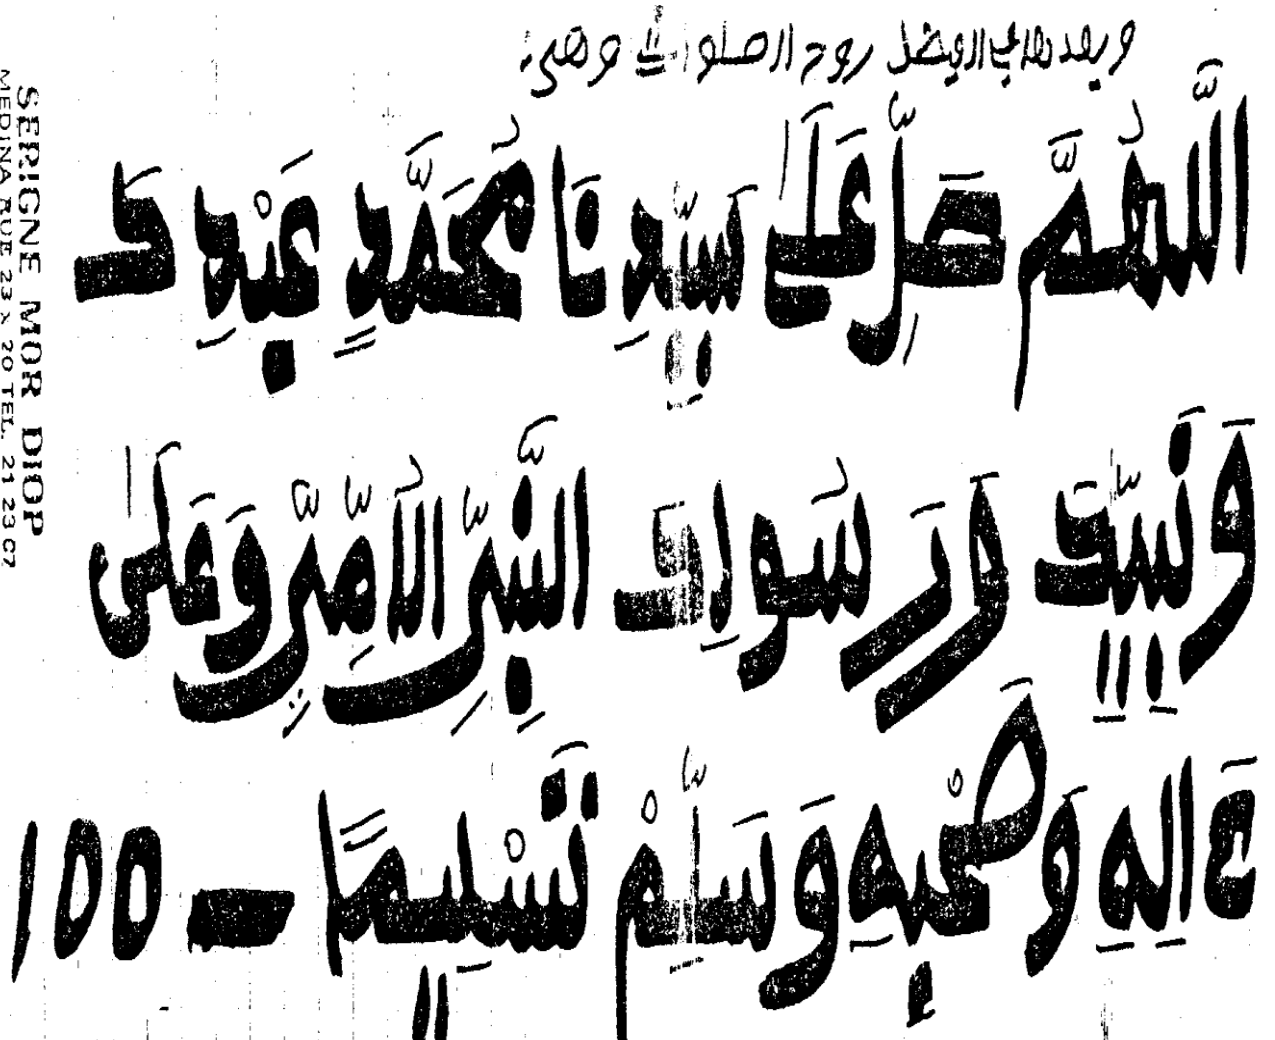 وبعد
روح الصلوات وهي:
اللَّهُمَّ صَلِّ عَلَىٰ سَيِّدِنَا مُحَمَّدٍ عَبْدِكَ
وَنَبِيِّكَ وَرَسُولِكَ النَّبِيِّ الأُمِّيِّ وَعَلَىٰ
ءَالِهِ وَصَحْبِهِ وَسَلِّمْ تَسْلِيمًا — 100
SERIGNE MOR DIOP
MEDINA RUE 23 x 20 TEL. 21 23 07